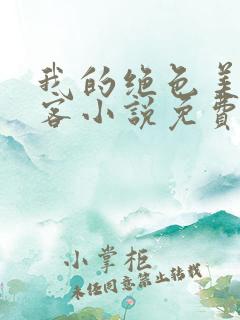 我的绝色
客小说免費
小掌柜
未经同意禁止转载